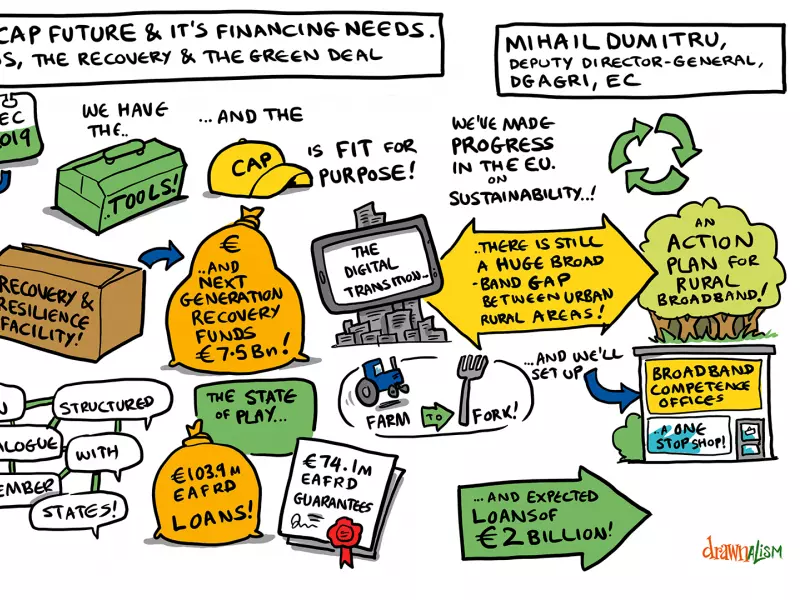 CAP FUTURE & IT'S FINANCING NEEDS.
, THE RECOVERY & THE GREEN DEAL
MIHAIL DUMITRU,
DEPUTY DIRECTOR-GENERAL,
DGAGRI, EC
25
EC
2019
WE HAVE
THE..
..TOOLS!
...AND THE
CAP
IS FIT FOR
PURPOSE!
WE'VE MADE
PROGRESS
IN THE EU.
ON
SUSTAINABILITY..!
RECOVERY &
RESILIENCE
FACILITY!
€
..AND
NEXT
GENERATION
RECOVERY
FUNDS
€7.5Bn!
THE
DIGITAL
TRANSITION...
..THERE IS STILL
A HUGE BROAD
-BAND GAP
BETWEEN URBAN
RURAL AREAS!
AN
ACTION
PLAN FOR
RURAL
BROADBAND!
...AND WE'LL
SET UP
BROADBAND
COMPETENCE
OFFICES
..A ONE
STOP SHOP!
FARM TO FORK!
STRUCTURED
ALOGUE
WITH
EMBER
STATES!
THE STATE
OF PLAY...
€103.9M
EAFRD
LOANS!
€74.1M
EAFRD
GUARANTEES
...AND EXPECTED
LOANS OF
€2 BILLION!
drawnALISM